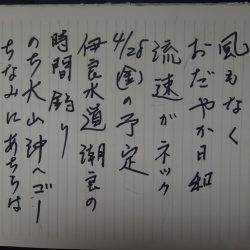 風もなく
おだやか日和
流速がネック
4/25(金)の予定
伊良水道潮玄の
時間釣り
のち大山沖へゴー
ちなみにあちらは